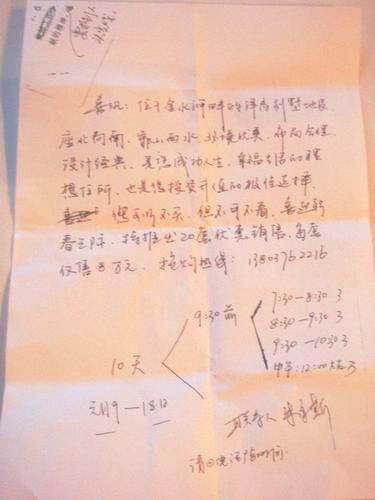 喜讯：位于金水河畔的洋房别墅地段
座北向南，靠山面水，环境优美，布局合理
设计经典，是您成功人生，幸福生活的理
想住所，也是您投资升值的最佳选择，
您可以不买，但不可不看，喜迎新
春之际，特推出20套优惠销售，每套
仅售8万元，抢购热线：13803762216
9:30前
7:30—8:30 3
8:30—9:30 3
9:30—10:30 3
中午：12:00
10天
元月9—18日
联系人
请回电话